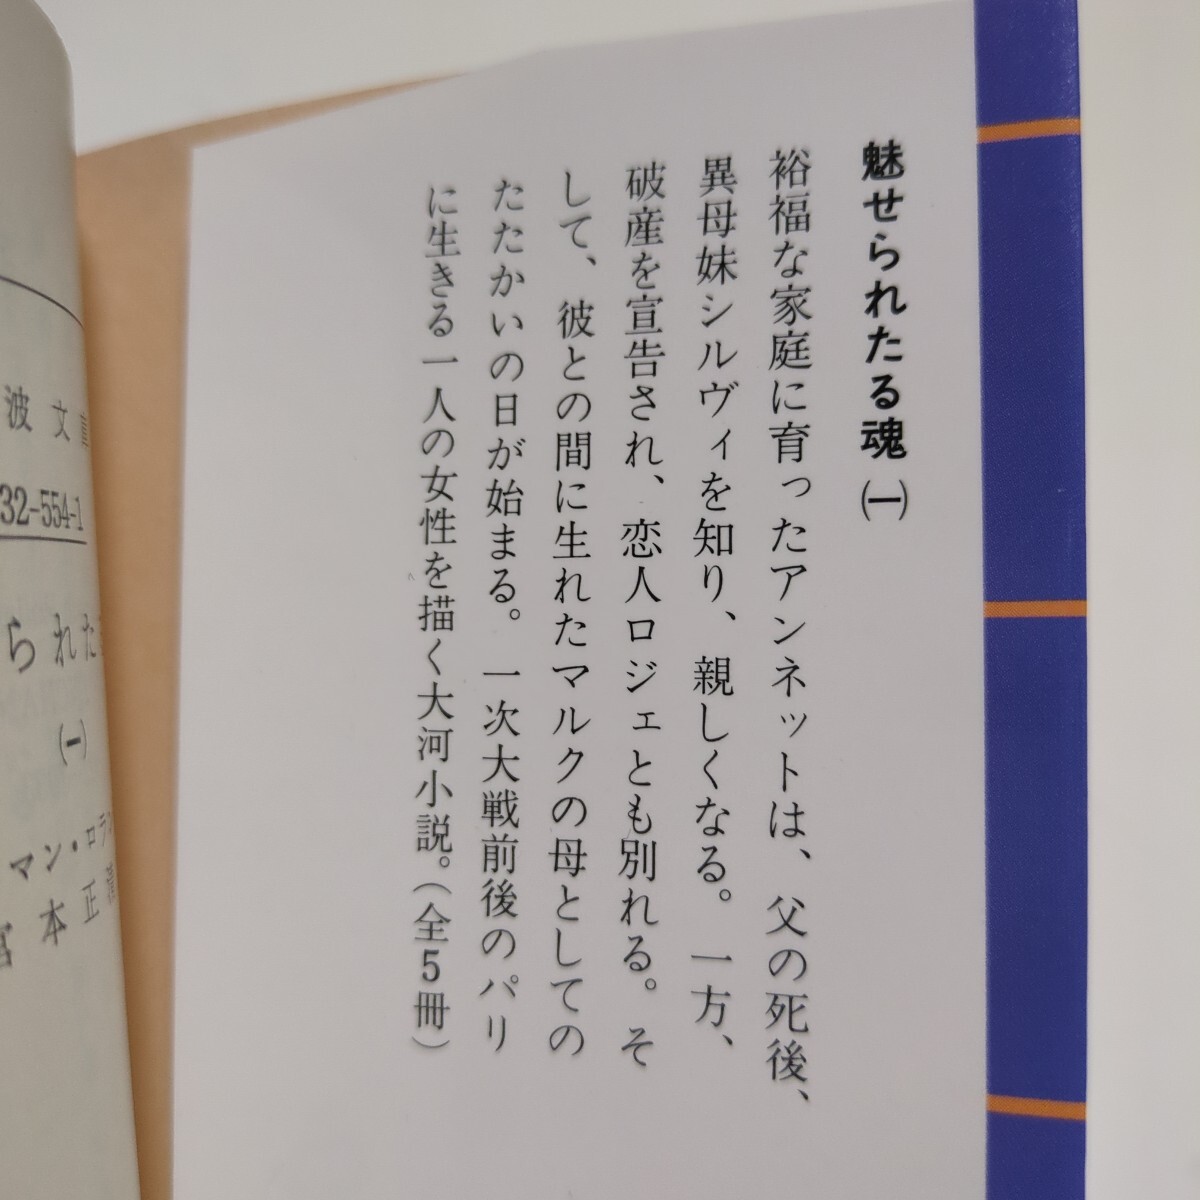 魅せられたる魂㈠
裕福な家庭に育ったアンネットは、父の死後、
異母妹シルヴィを知り、親しくなる。一方、
破産を宣告され、恋人ロジェとも別れる。そ
して、彼との間に生れたマルクの母としての
たたかいの日が始まる。一次大戦前後のパリ
に生きる一人の女性を描く大河小説。（全5冊）
波文
32-554-1
られた
㈠
マン・ロラ
宮本正